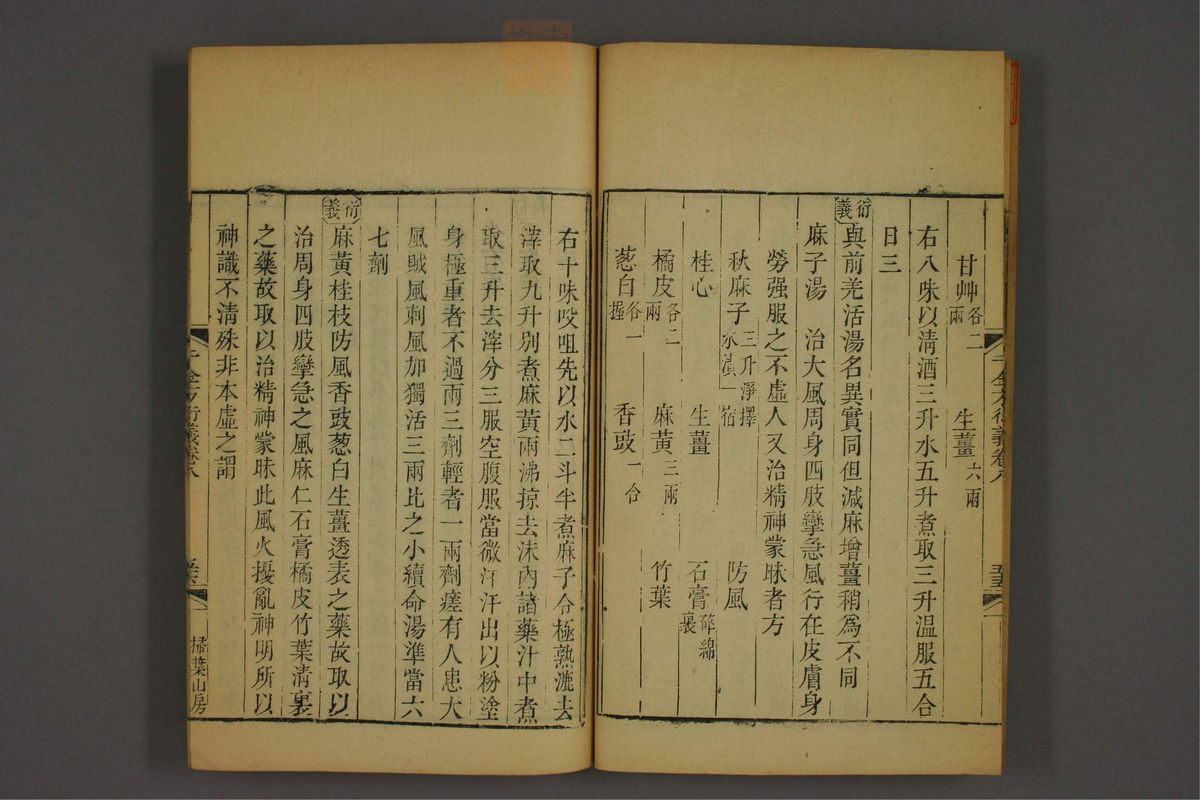 甘艸各二兩 生薑六兩
右八味以清酒三升水五升煮取三升温服五合
日三
衍義 與前羌活湯名異實同但減麻增薑稍為不同
麻子湯 治大風周身四肢攣急風行在皮膚身
勞强服之不虛人又治精神蒙昧者方
秋麻子三升淨擇水漬一宿 防風
桂心 生薑 石膏碎綿裹
橘皮各二兩 麻黄三兩 竹葉
葱白各一握 香豉一合
右十味㕮咀先以水二斗半煮麻子令極熟漉去
滓取九升别煮麻黄兩沸掠去沫內諸藥汁中煮
取三升去滓分三服空腹服當微汗汗出以粉塗
身極重者不過兩三劑輕者一兩劑瘥有人患大
風賊風刺風加獨活三兩比之小續命湯準當六
七劑
衍義 麻黄桂枝防風香豉葱白生薑透表之藥故取以
治周身四肢攣急之風麻仁石膏橘皮竹葉清裏
之藥故取以治精神蒙昧此風火擾亂神明所以
神識不清殊非本虛之謂
千金方衍義卷八
掃葉山房